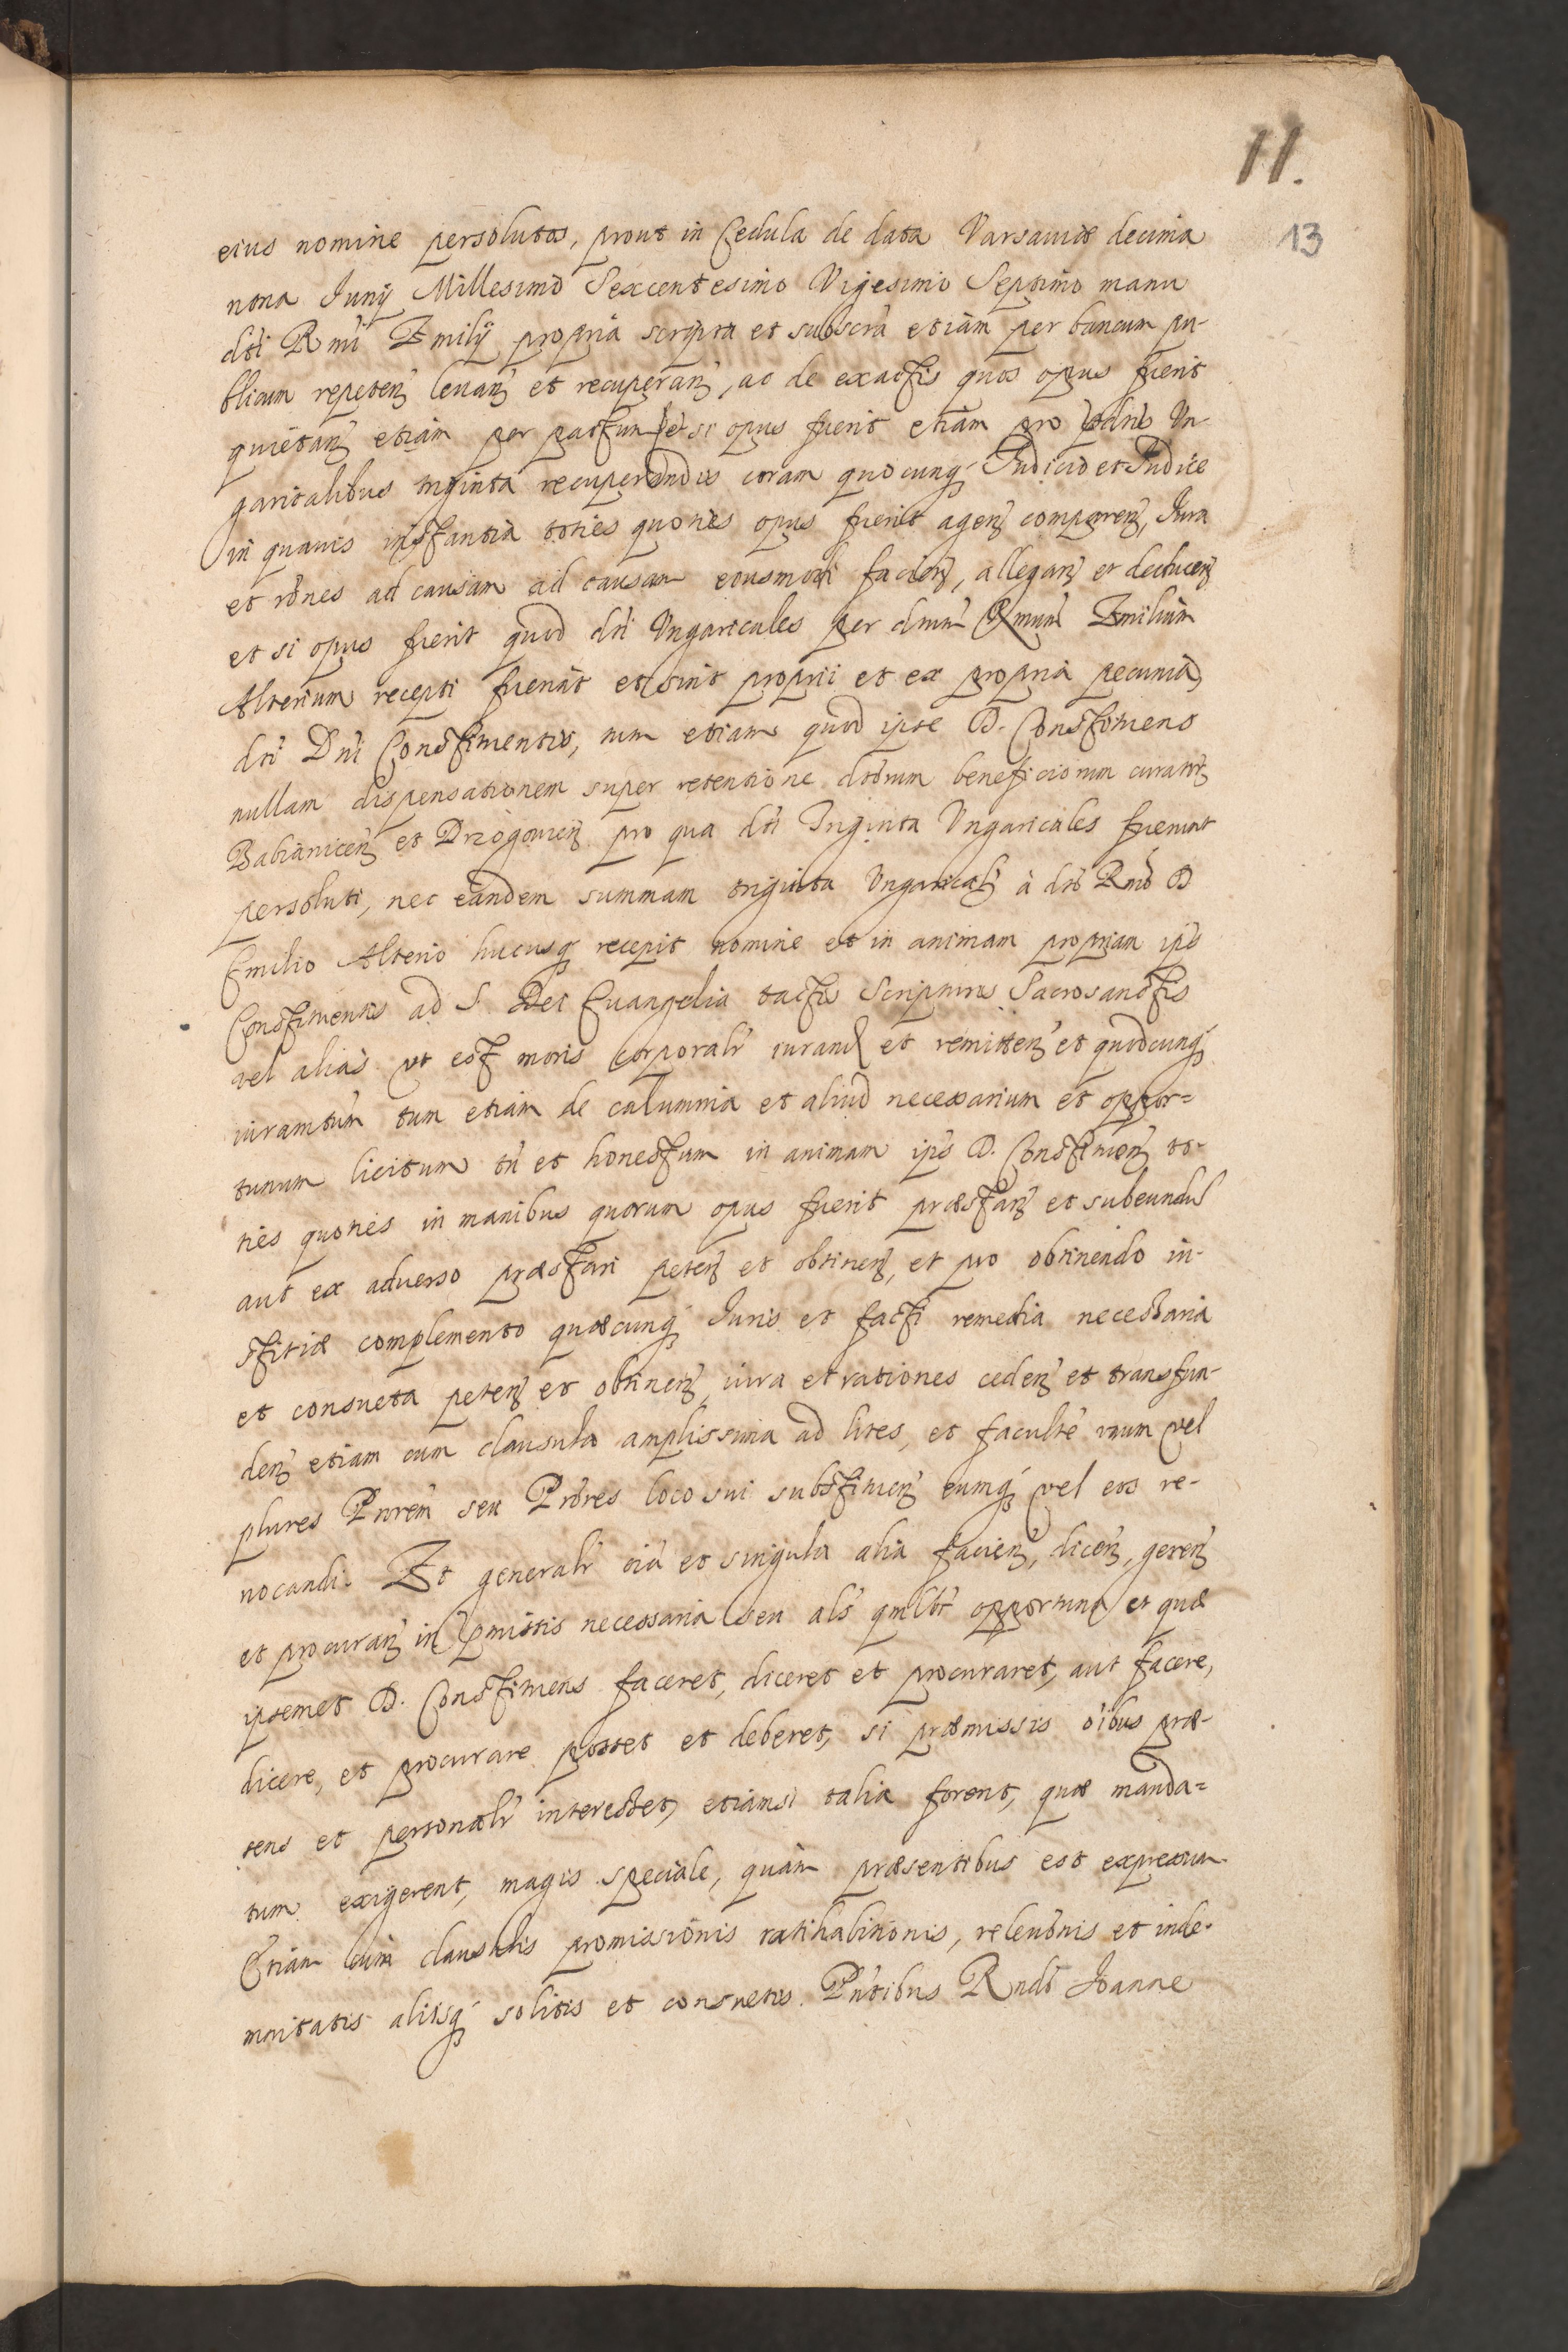 11.
13
eius nomine persolutos, prout in Cedula de data Varsauiæ decima
nona Junij Millesimo Sexcentesimo Vigesimo Septimo manu
dti Rmi Emilij propria scripta et subscrã etiam per bancum pu-
blicum repeten levan et recuperan, ac de exactis quos opus fuerit
quietan etiam per pactum et si opus fuerit etiam pro pdris Un-
garicalibus triginta recuperandis coram quocunq Judicio et Judice
in quauis instantia toties quoties opus fuerit agen comparen, Jura
et rônes ad causam ad causam eiusmodi facien, allegan et deducen
et si opus fuerit quod dti Ungaricales per dnum Rmum Emilium
Alterium recepti fuerint et sint proprii et ex propria pecunia
dti Dni Constituentis, tum etiam quod ipse D. Constituens
nullam dispensationem super retentione dtorum beneficiorum curator
Babianicen et Drzogouien pro qua dti Triginta Ungaricales fuerunt
persoluti, nec eandem summam triginta Ungarical à dto Rmo D
Emilio Alterio hucusq recepit nomine et in animam propriam ips
Constituentis ad S. Dei Euangelia tactis Scripturis Sacrosanctis
vel alias ut est moris corporalr iurand et remitten et quodcunq
iuramtum tum etiam de calumnia et aliud necessarium et oppor=
tunum licitum tñ et honestum in animam ips D. Constituen to-
ties quoties in manibus quorum opus fuerit præstan et subeundul
aut ex aduerso præstari peten et obtinen, et pro obtinendo iu-
stitiæ complemento quæcunq Juris et facti remedia necessaria
et consueta peten et obtinen, iura et rationes ceden et transfun-
den etiam cum clausula amplissima ad lites, et facultẽ unum vel
plures Prorem seu Prores loco sui substituen eumq vel eos re-
uocandi. Et generalr oia et singula alia facien, dicen, geren
et procuran in pmissis necessaria seu als qmlbt opportuna et quæ
ipsemet D. Constituens faceret, diceret et procuraret, aut facere,
dicere, et procurare posset et deberet, si præmissis oibus præ-
sens et personalr interesset, etiamsi talia forent, quæ manda=
tum exigerent, magis speciale, quàm præsentibus est expressum
Etiam cum clausulis promissionis ratihabitionis, releuonis et inde-
mnitatis aliisq solitis et consuetis. Pntibus Rndo Joanne